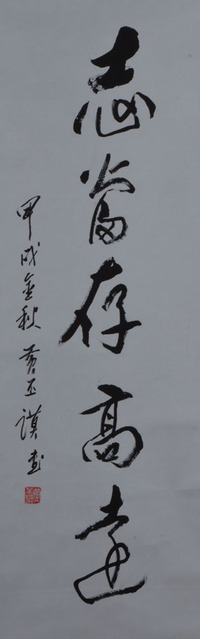 志當存高遠
甲戌金秋 黄玉漢書